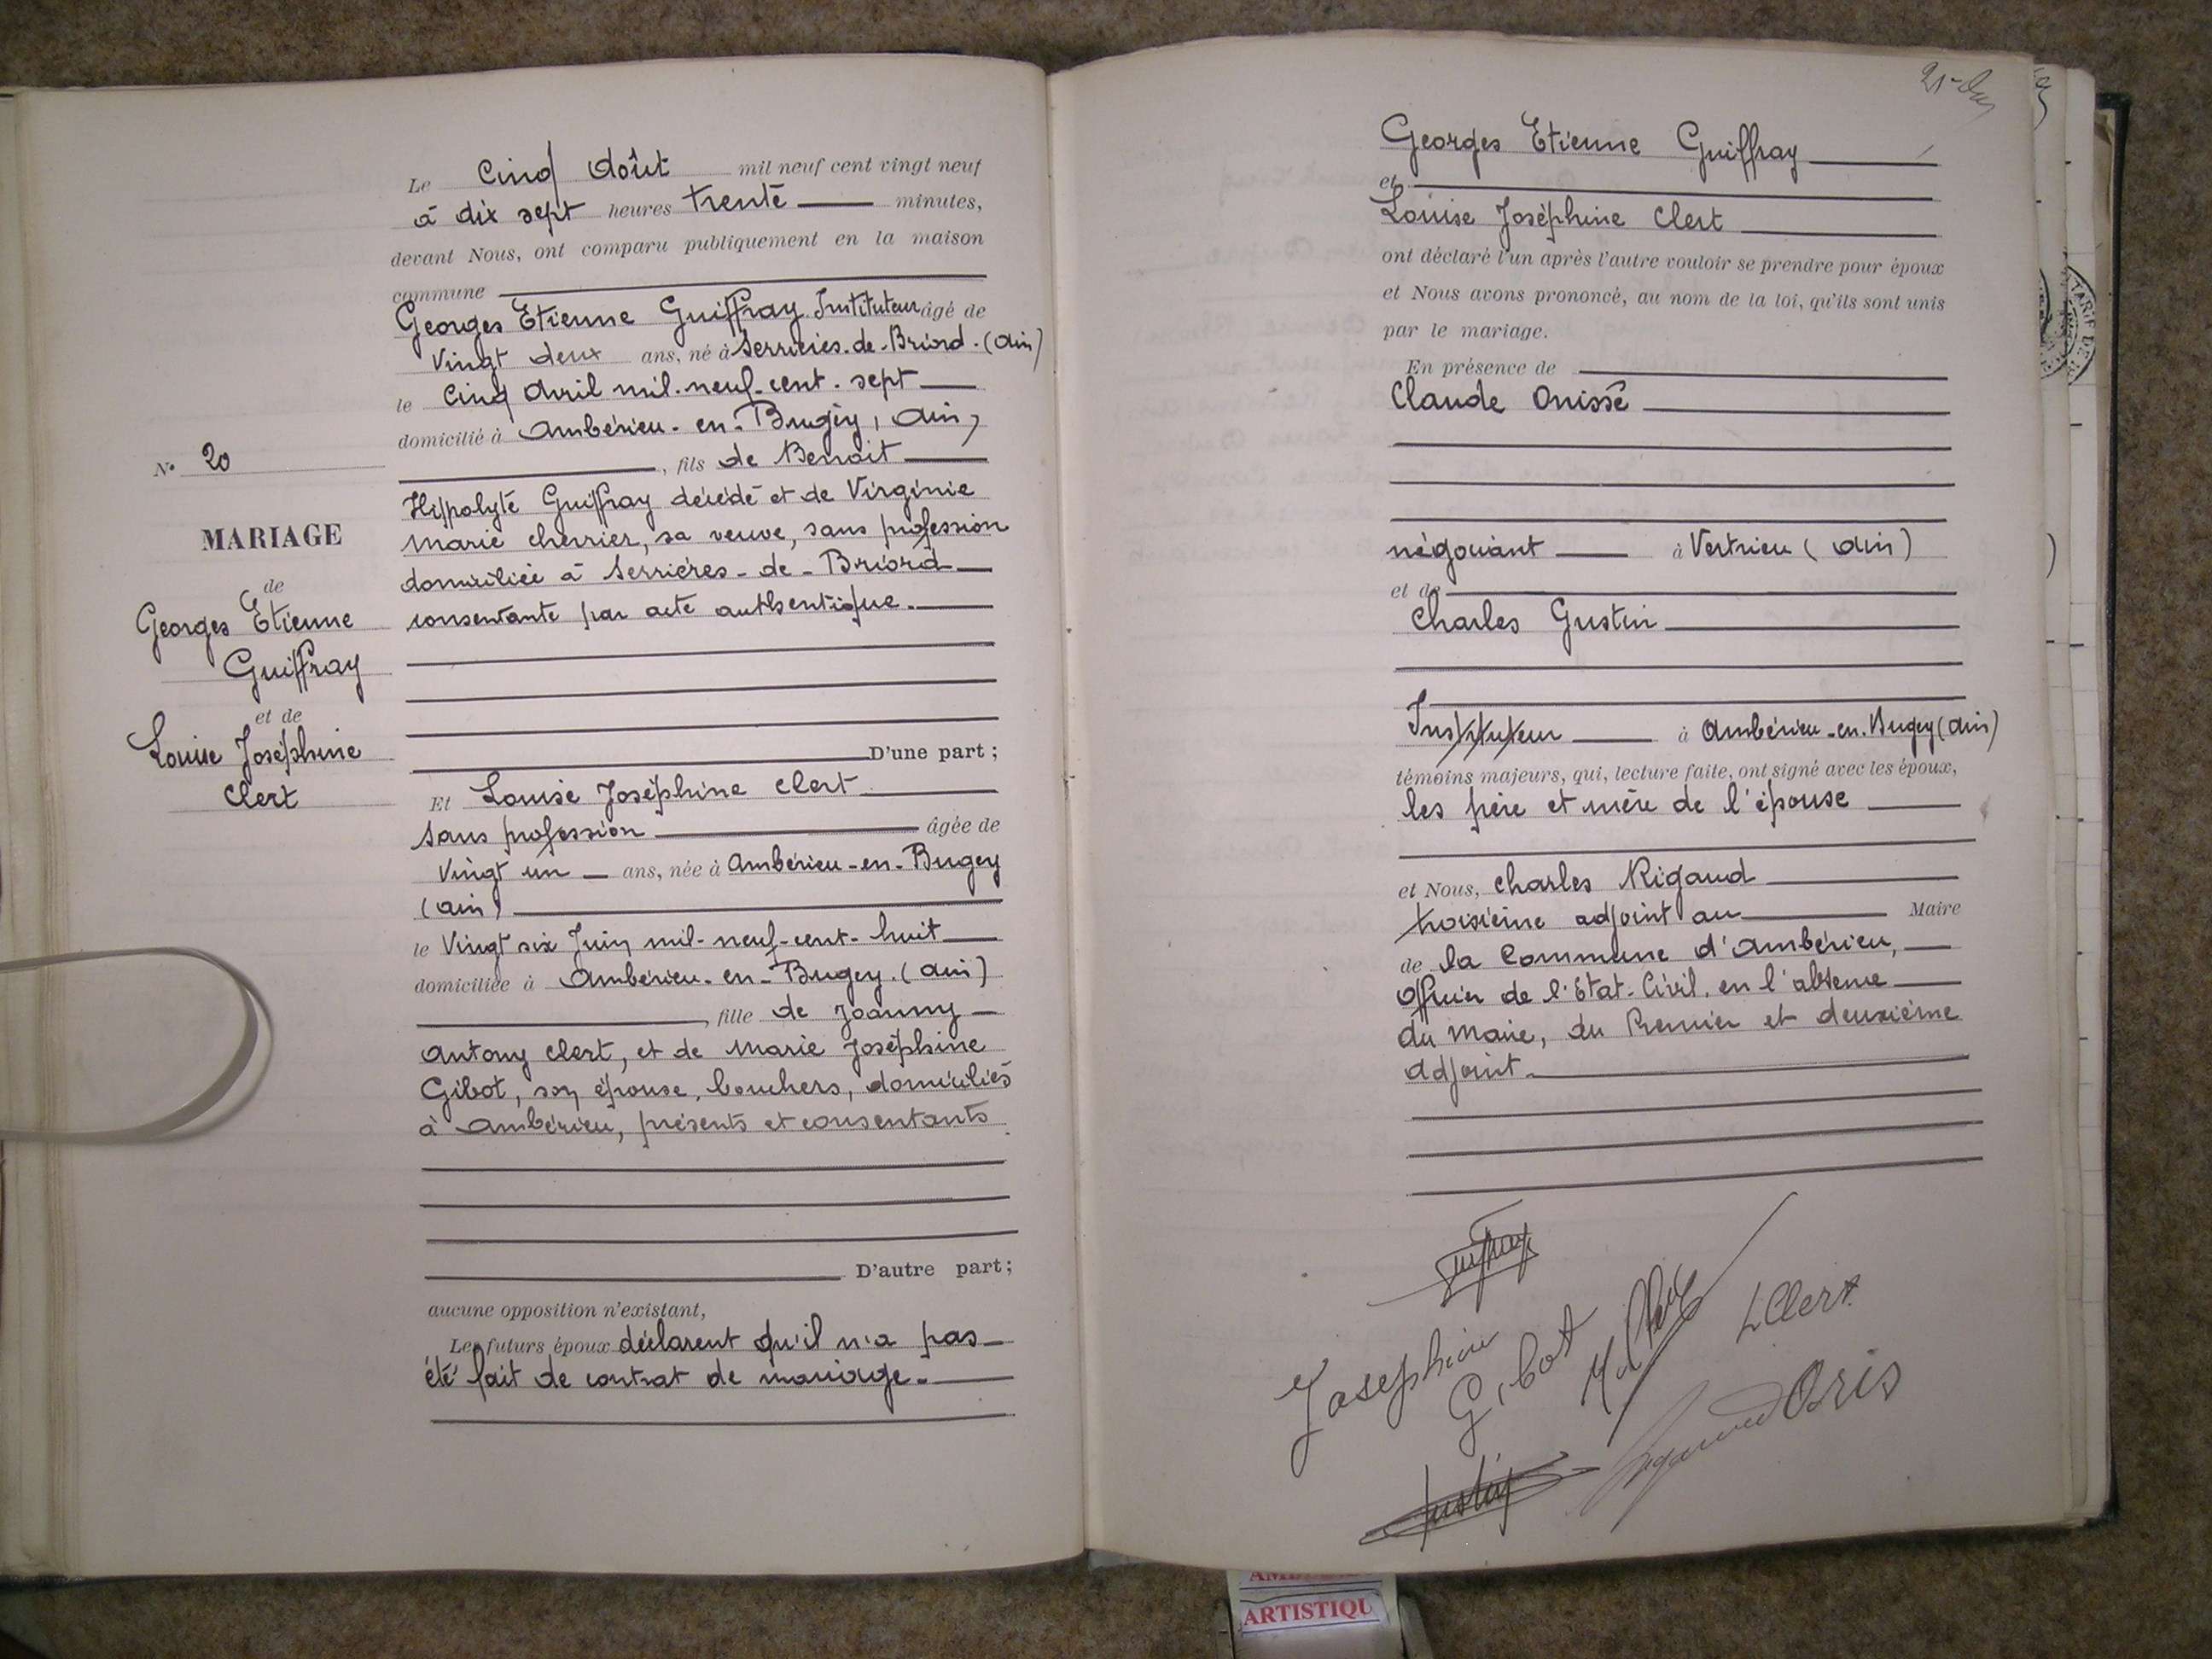 Le cinq Août mil neuf cent vingt neuf
à dix sept heures trente minutes,
devant Nous, ont comparu publiquement en la maison
commune
Georges Etienne Guiffray Instituteur âgé de
Vingt deux ans, né à Serrières-de-Briord. (Ain)
le cinq Avril mil-neuf-cent-sept
domicilié à Ambérieu-en-Bugey, Ain,
, fils de Benoit
Hippolyte Guiffray décédé et de Virginie
Marie cherrier, sa veuve, sans profession
domiciliée à Serrières-de-Briord
consentante par acte authentique.
D'une part ;
Et Louise Joséphine Clert
sans profession âgée de
Vingt un ans, née à Ambérieu-en-Bugey
(Ain)
le Vingt six Juin mil-neuf-cent-huit
domiciliée à Ambérieu-en-Bugey. (Ain)
, fille de Joanny
Antony Clert, et de Marie Joséphine
Gibot, son épouse, bouchers, domiciliés
à Ambérieu, présents et consentants
D'autre part ;
aucune opposition n'existant,
Les futurs époux déclarent qu'il n'a pas
été fait de contrat de mariage.
N° 20
MARIAGE
de
Georges Etienne
Guiffray
et de
Louise Joséphine
Clert
Georges Etienne Guiffray
et
Louise Joséphine Clert
ont déclaré l'un après l'autre vouloir se prendre pour époux
et Nous avons prononcé, au nom de la loi, qu'ils sont unis
par le mariage.
En présence de
Claude
négociant à Vertrieu (Ain)
et de
Charles Gustin
Instituteur à Ambérieu-en-Bugey (Ain)
témoins majeurs, qui, lecture faite, ont signé avec les époux,
les père et mère de l'épouse
et Nous, Charles Rigaud
troisième adjoint au Maire
de la Commune d'Ambérieu,
Officier de l'Etat-Civil, en l'absence
du Maire, du Premier et deuxième
Adjoint.
Guiffray
Josephine
Gibot
LClert
Gustin
TARIF DE
ARTISTIQU